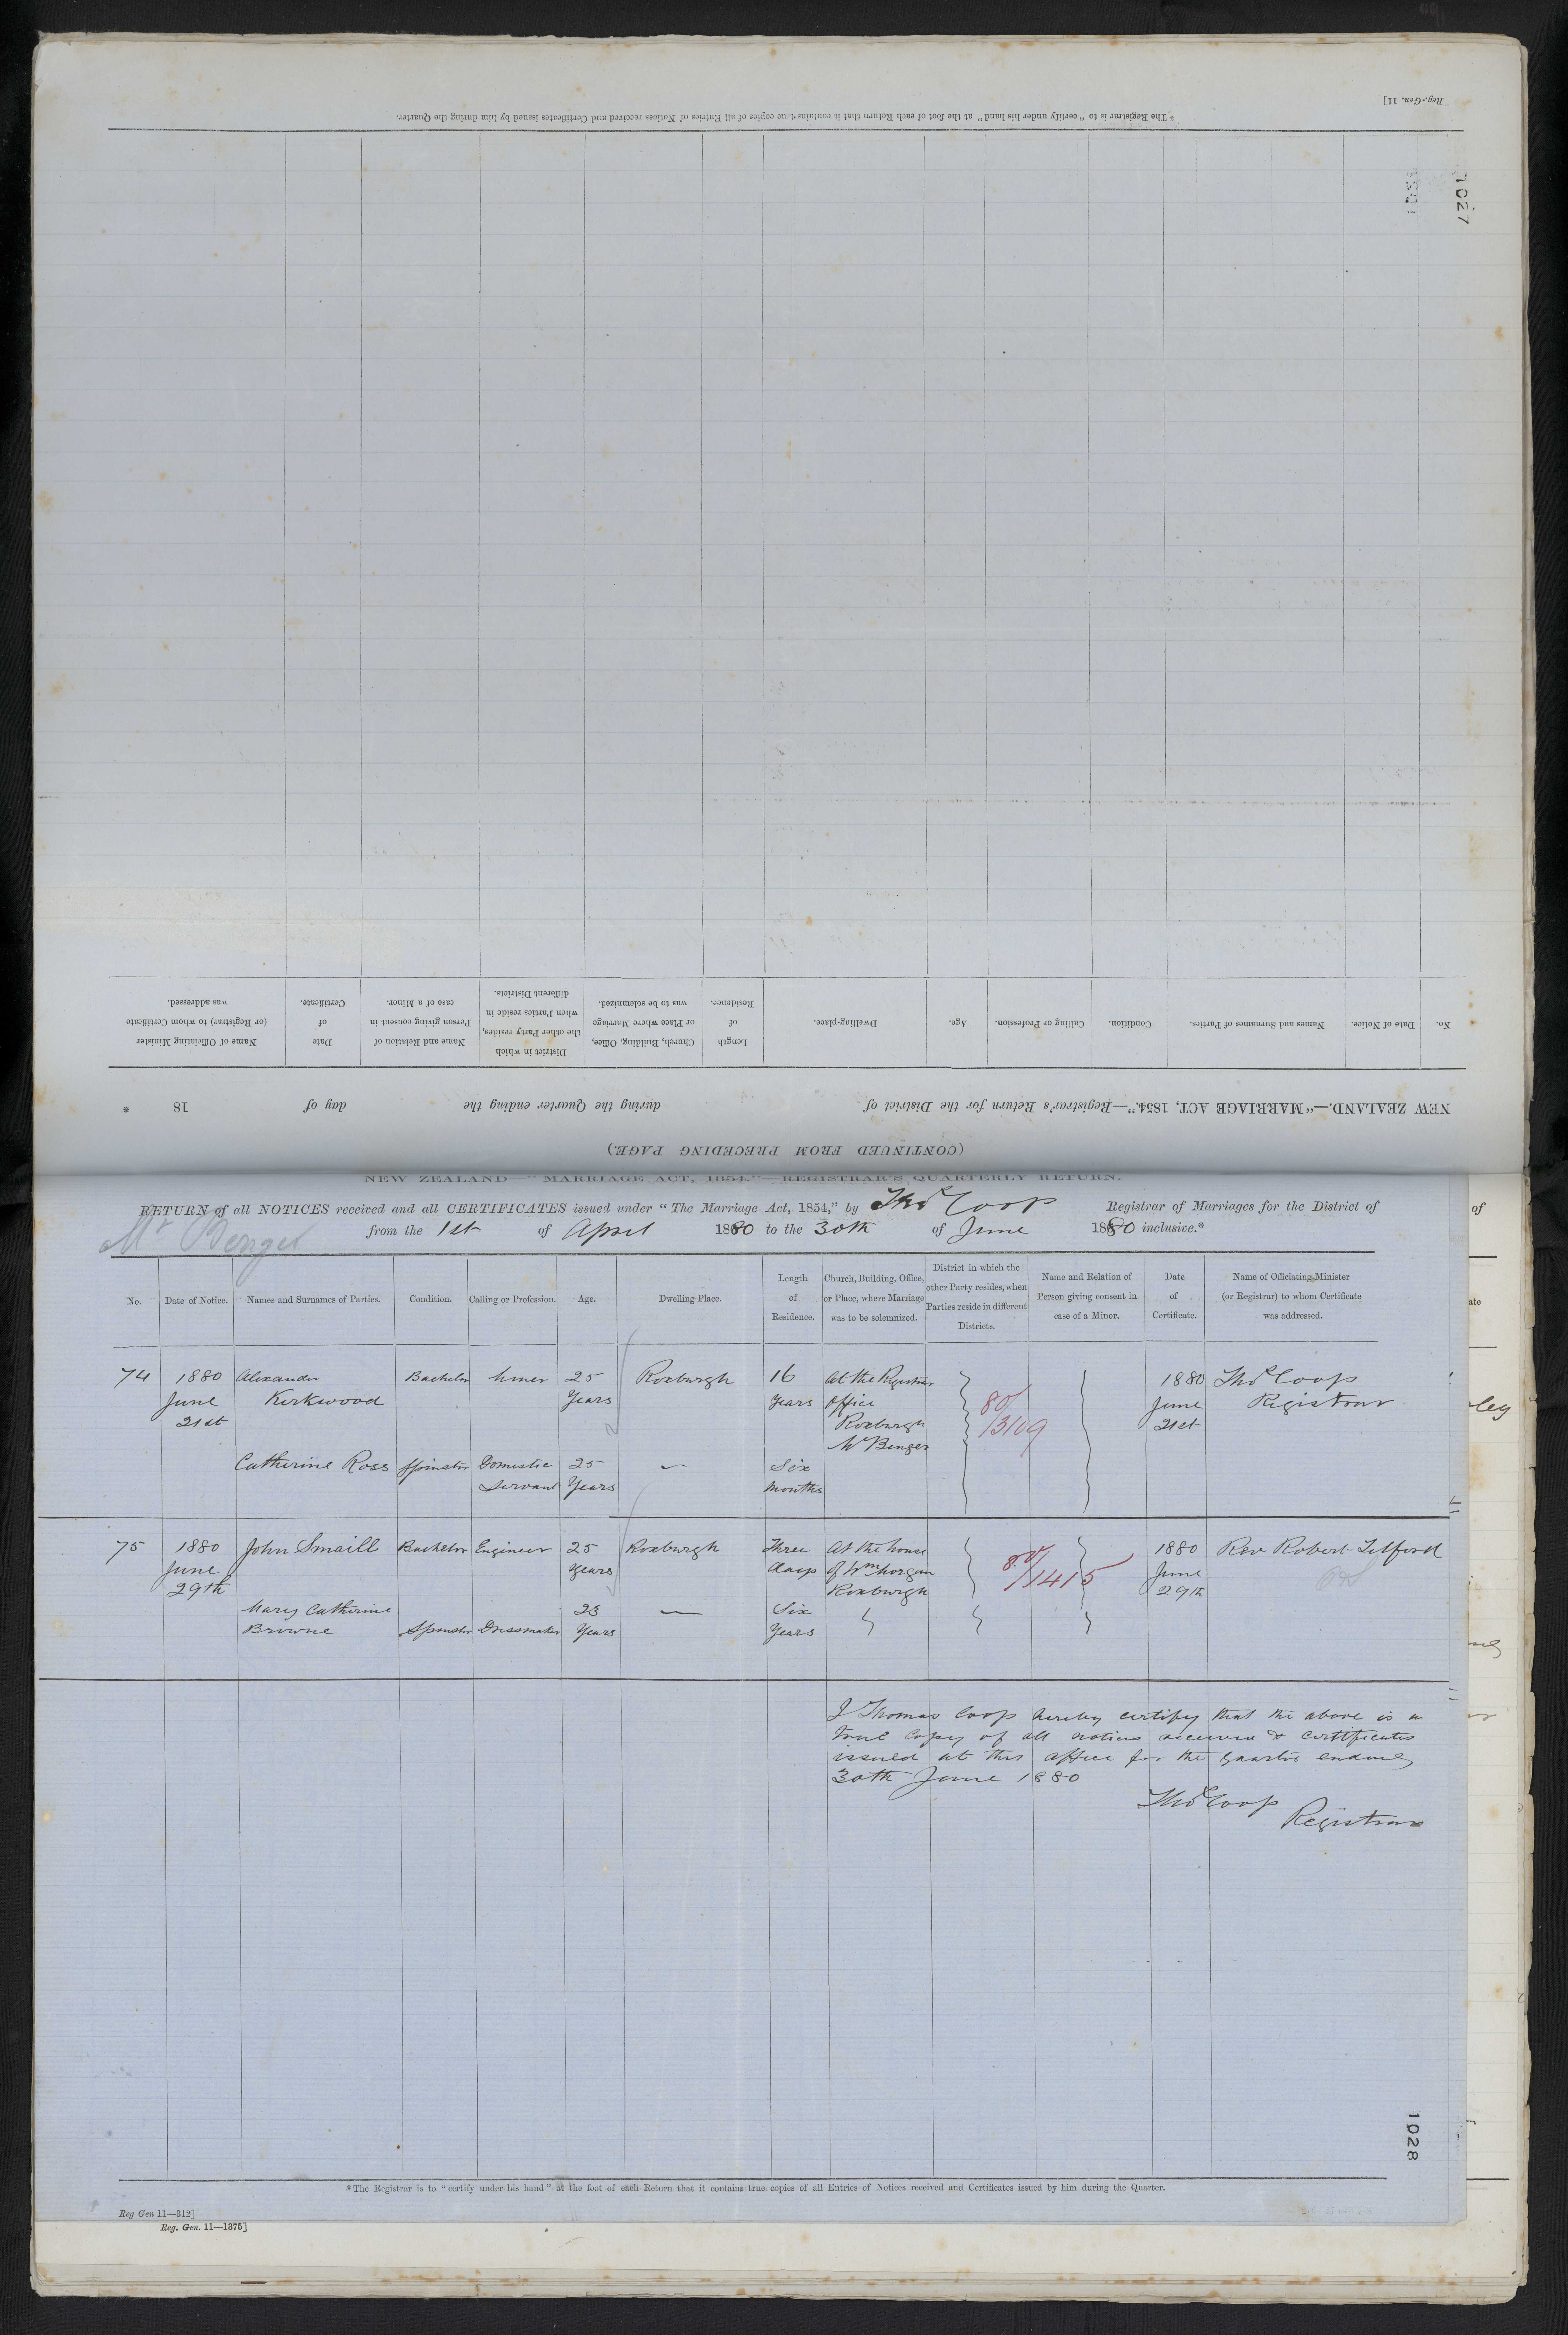 Reg.-Gen. 11]
* The Registrar is to "certify under his hand" at the foot of each Return that it contains true copies of all Entries of Notices received and Certificates issued by him during the Quarter.
1027
No. Date of Notice. Names and Surnames of Parties. Condition. Calling or Profession. Age. Dwelling-place. Length of Residence. Church, Building, Office, or Place where Marriage was to be solemnized. District in which the other Party resides, when Parties reside in different Districts. Name and Relation of Person giving consent in case of a Minor. Date of Certificate. Name of Officiating Minister (or Registrar) to whom Certificate was addressed.
NEW ZEALAND.—"MARRIAGE ACT, 1854."—Registrar's Return for the District of during the Quarter ending the day of 18 .
(CONTINUED FROM PRECEDING PAGE.)
NEW ZEALAND—"MARRIAGE ACT, 1854."—REGISTRAR'S QUARTERLY RETURN.
RETURN of all NOTICES received and all CERTIFICATES issued under "The Marriage Act, 1854," by Thos Coop Registrar of Marriages for the District of
Mt Benger from the 1st of April 1880 to the 30th of June 1880 inclusive.*
No. Date of Notice. Names and Surnames of Parties. Condition. Calling or Profession. Age. Dwelling Place. Length of Residence. Church, Building, Office, or Place, where Marriage was to be solemnized. District in which the other Party resides, when Parties reside in different Districts. Name and Relation of Person giving consent in case of a Minor. Date of Certificate. Name of Officiating Minister (or Registrar) to whom Certificate was addressed.
74 1880 Alexander Bachelor Miner 25 Roxburgh 16 At the Registrar 1880 Thos Coop
June Kirkwood Years Years office 80/ June Registrar
21st Roxburgh 1309 21st
Mt Benger
Catherine Ross Spinster Domestic 25 — Six
Servant Years Months
75 1880 John Smaill Bachelor Engineer 25 Roxburgh Three At the house 80/ 1880 Rev Robert Telford
June Years days of Wm Morgan 1415 June
29th Roxburgh 29th
Mary Catherine 23 — Six
Browne Spinster Dressmaker Years Years
I Thomas Coop hereby certify that the above is a
true copy of all notices received & certificates
issued at this office for the quarter ending
30th June 1880
Thos Coop
Registrar
1028
* The Registrar is to "certify under his hand" at the foot of each Return that it contains true copies of all Entries of Notices received and Certificates issued by him during the Quarter.
Reg Gen 11—312]
Reg. Gen. 11—1375]